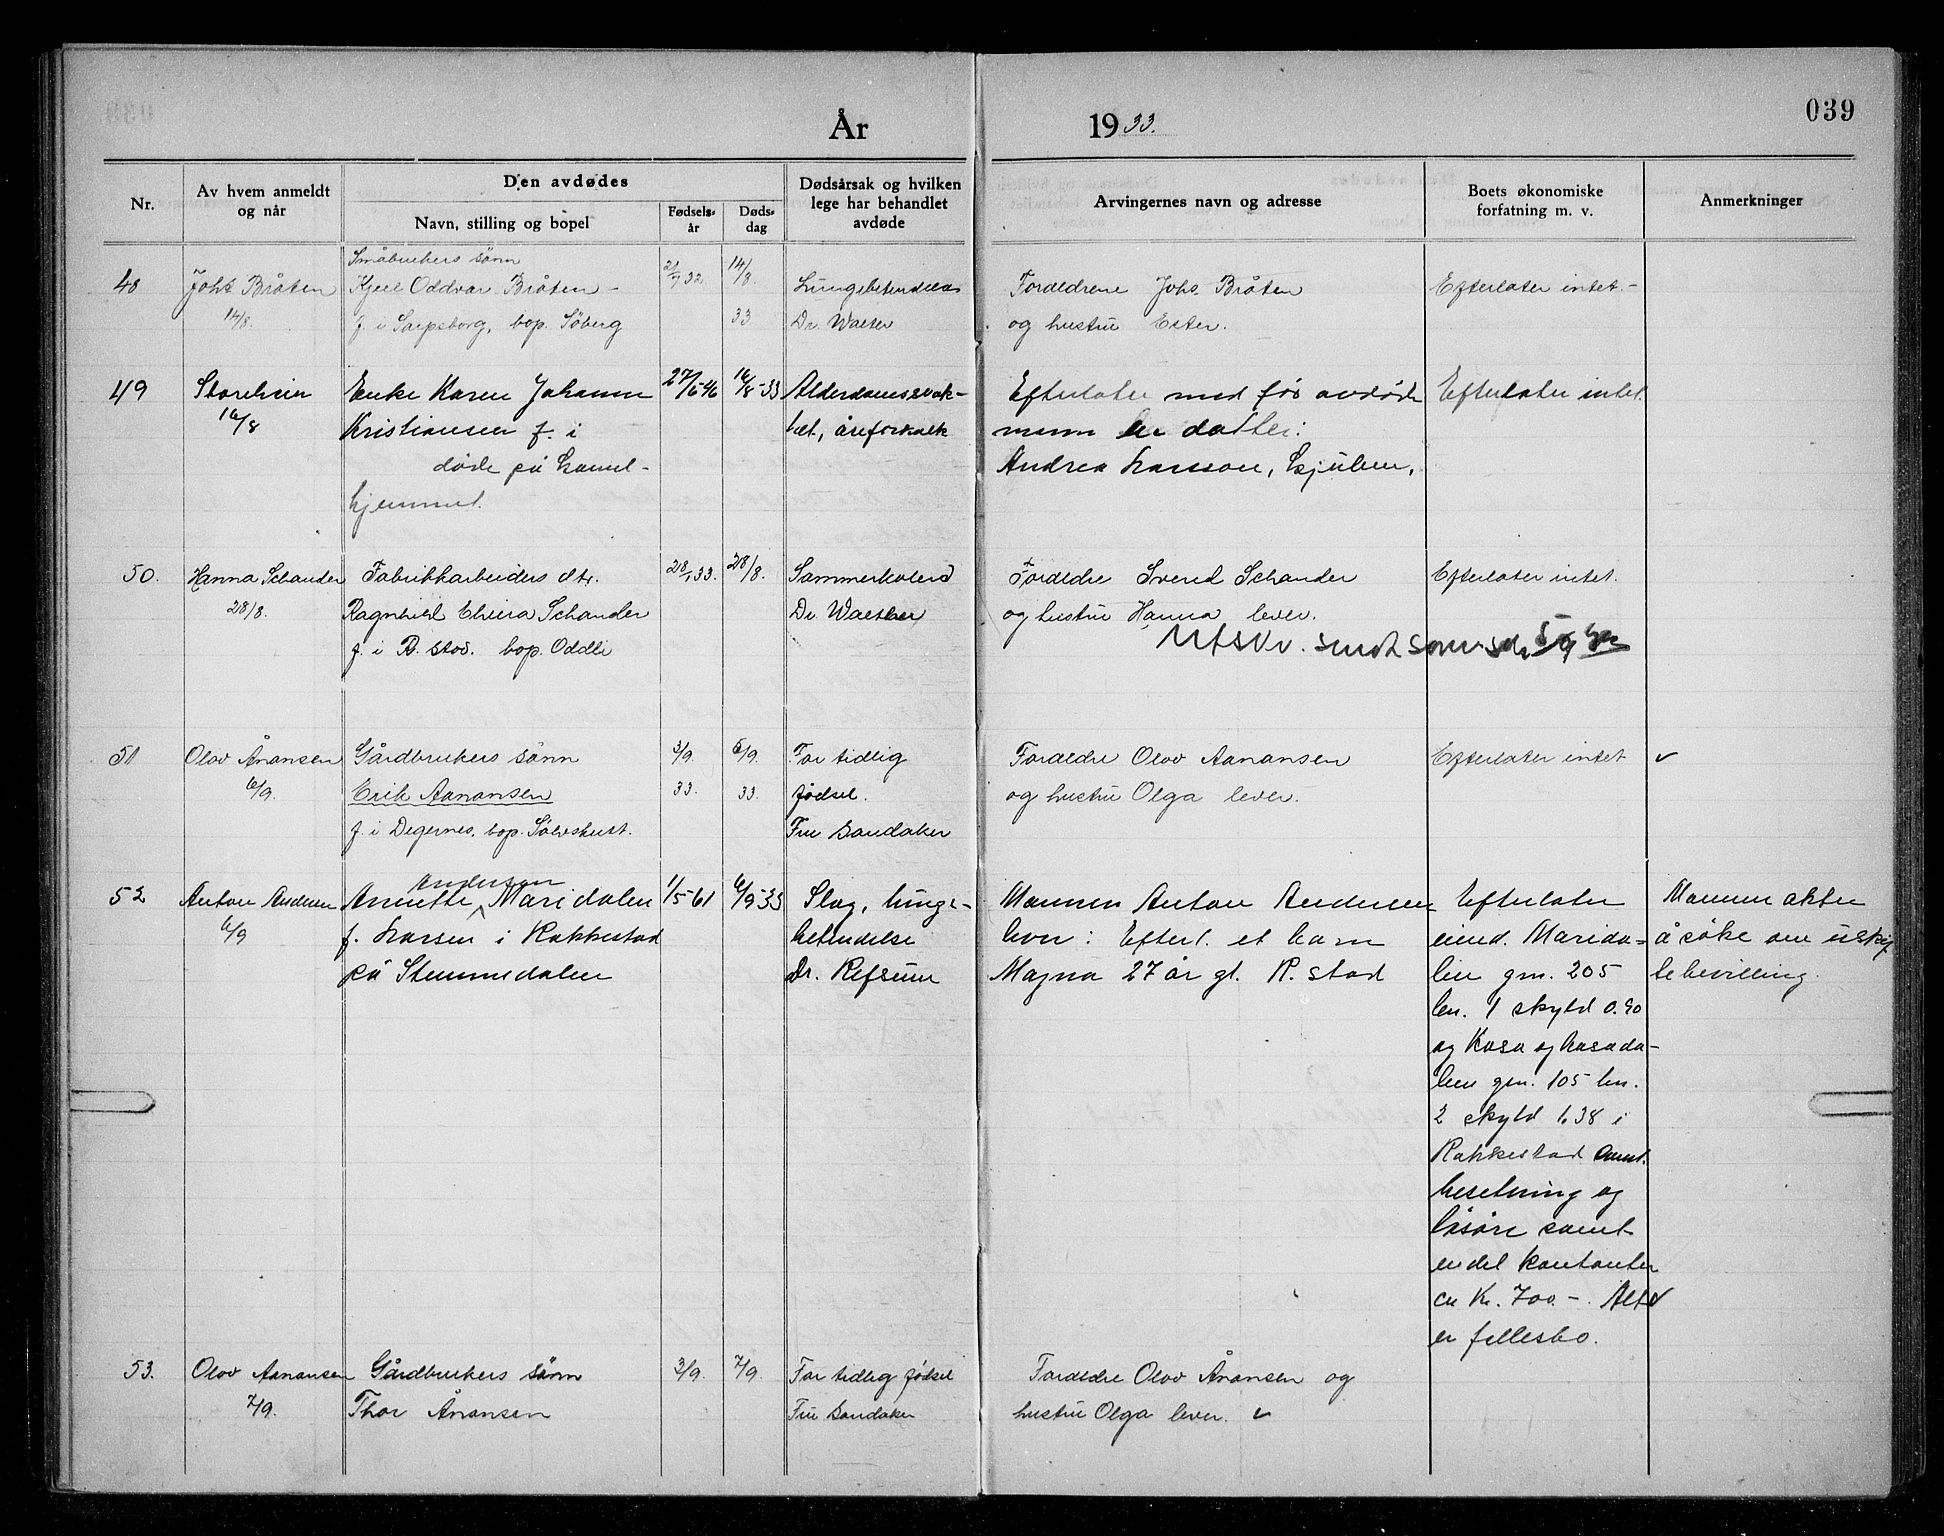 039
År 1933.
Nr.
Av hvem anmeldt og når
Den avdødes
Navn, stilling og bopel
Fødselsår
Dødsdag
Dødsårsak og hvilken lege har behandlet avdøde
Arvingernes navn og adresse
Boets økonomiske forfatning m. v.
Anmerkninger
48
Johs Bråten
14/8.
Småbrukers sönn
Kjell Oddvar Bråten –
f. i Sarpsborg, bop. Söberg
32
14/8.
33
Lungebetendelse
Dr. Walter
Foreldrene Johs. Bråten
og hustru Ester.
Efterlater intet.-
49
Storeheier
16/8
Enke Karen Johanne
Kristiansen f. i
døde på Gamle-
hjemmet.
27/6-46
16/8-33
Alderdomssvak-
het, åreforkalk
Efterlater med før avdøde
mann en datter:
Andrea Larsson,
Efterlater intet.
50.
Hanna Schander
28/8.
Fabrikkarbeiders dtr.
Ragnhild Elvira Schander
f. i R.stad. bop. Oddli
33.
28/8.
Dr Walther
Foreldre Svend Schander
og hustru Hanna lever.
Efterlater intet.
Utskr. sendt
51
Olav Ånansen
6/9.
Gårdbrukers sönn
Erik Aanansen
f. i Degernes, bop.
3/9.
33.
5/9.
33.
For tidlig
fødsel.
Fru Sandaker
Foreldre Olav Aanansen
og hustru Olga lever.
Efterlater intet
✓
52
Anton Andersen
6/9
Andersen
Annette Maridalen
f. Larsen i Rakkestad
på Stemmedalen
1/5-61
6/9-33
Slag, lunge-
betendelse
Dr. Refsum
Mannen Anton Andersen
lever: Efterl. et barn
Magna 27 år gl. R.stad
Efterlater
eiend. Marida-
len gnr. 205
bn. 1 skyld 0.90
og Kasa og Kasada-
len gnr. 105 bn.
2 skyld 1,38 i
Rakkestad samt
besetning og
løsøre samt
endel kontanter
ca Kr. 700.-. Alt
er fellesbo.
✓
Mannen akter
å søke om uskif-
tebevilling.
53.
Olav Aanansen
7/9.
Gårdbrukers sönn
Thor Ånansen
3/9.
7/9.
For tidlig fødsel
Fru Sandaker
Foreldre Olav Ånansen og
hustru Olga lever. ✓